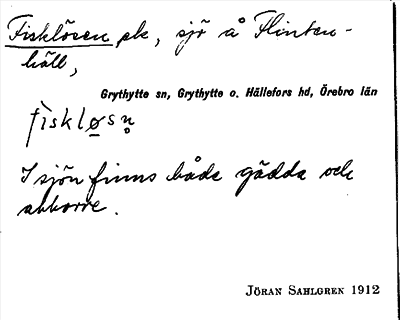 Fisklösen pl, sjö å Flinten-
häll,
Grythytte sn, Grythytte o. Hällefors hd, Örebro län
fìskløsn̥
I sjön finns både gädda och
abborre.
JÖRAN SAHLGREN 1912